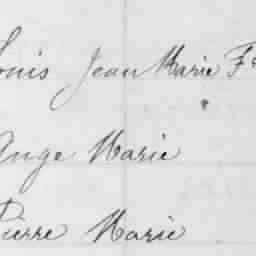 Louis Jean Marie Fs
Ange Marie
Pierre Marie